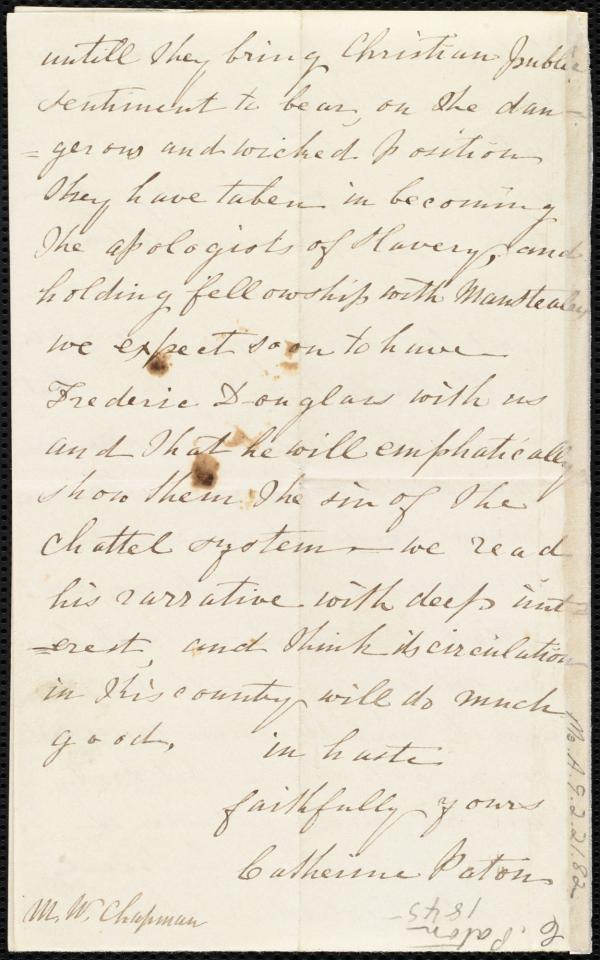 untill they bring Christian public
sentiment to bear, on the dan-
=gerous and wicked position
they have taken in becoming
the apologists of Slavery, and
holding fellowship with Manstealers
we expect soon to have
Frederic Douglass with us
and that he will emphatically
show them the sin of the
chattel system — we read
his narrative with deep int
=erest, and think its circulation
in this country will do much
good,
in haste
faithfully yours
Catherine Paton
M. W. Chapman
C. Paton
1845
Ms. A. 9. 2. 21. 82